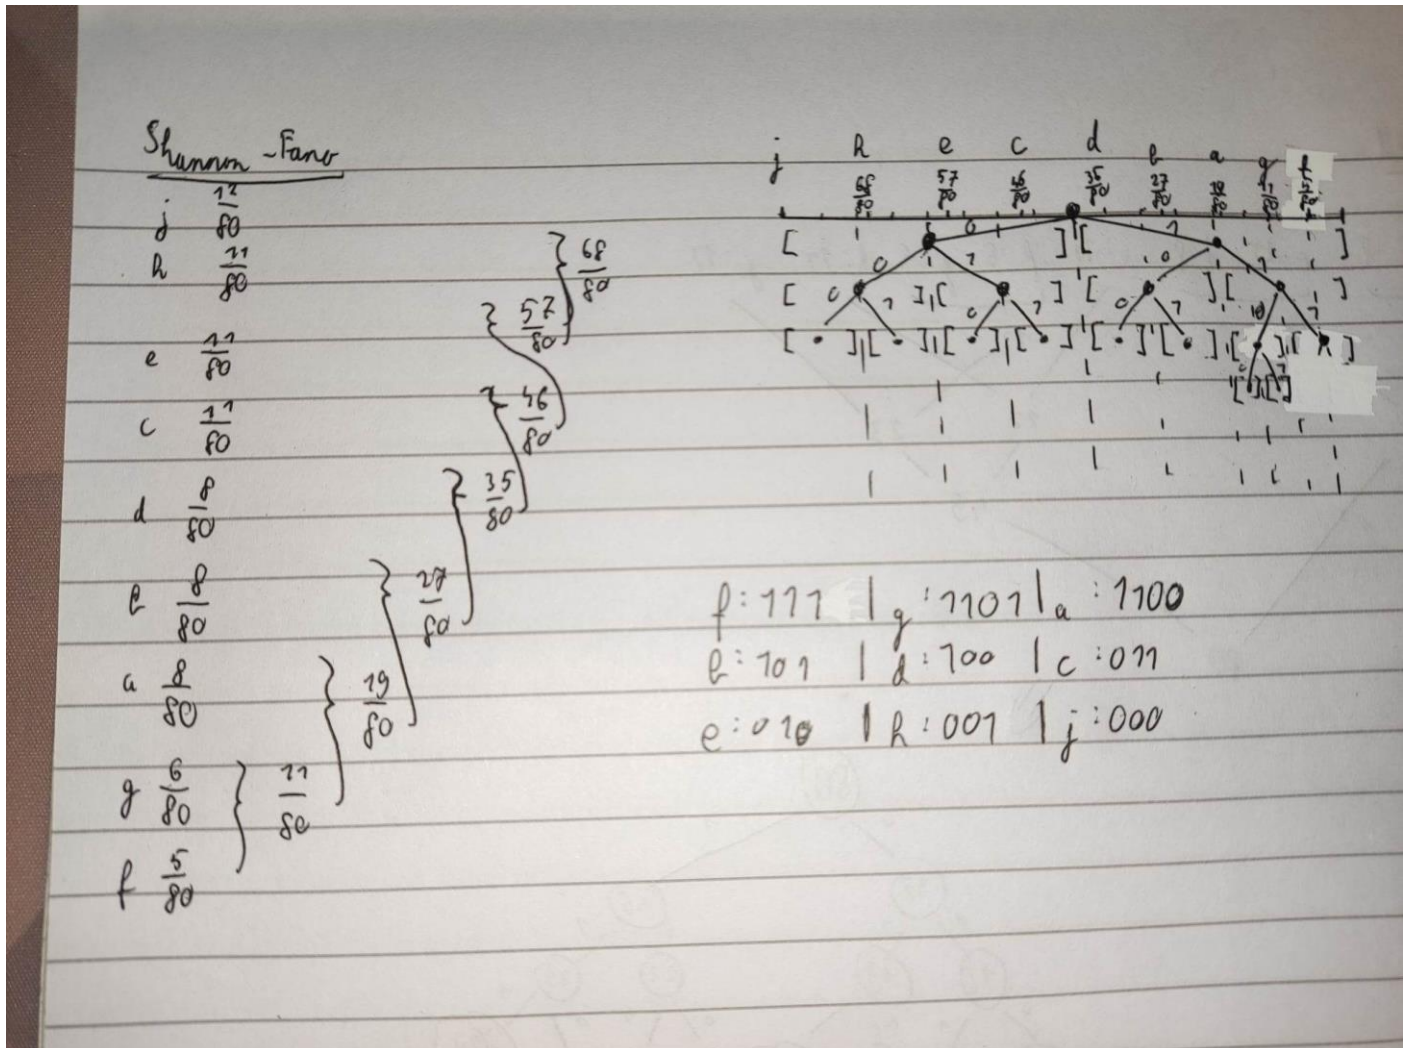 Shannon-Fano
j 12/80
h 11/80
e 11/80
c 11/80
d 8/80
b 8/80
a 8/80
g 6/80
f 5/80
11/80
19/80
27/80
35/80
46/80
57/80
68/80
j h e c d b a g f
68/80 57/80 46/80 35/80 27/80 19/80
0 1
[ ][ ]
0 1 0 1
[ ][ ][ ][ ]
0 1 0 1 0 1 1
[ ][ ][ ][ ][ ][ ][ ][ ]
0 1
[ ][ ]
f:111 | g:1101 | a:1100
b:101 | d:100 | c:011
e:010 | h:001 | j:000